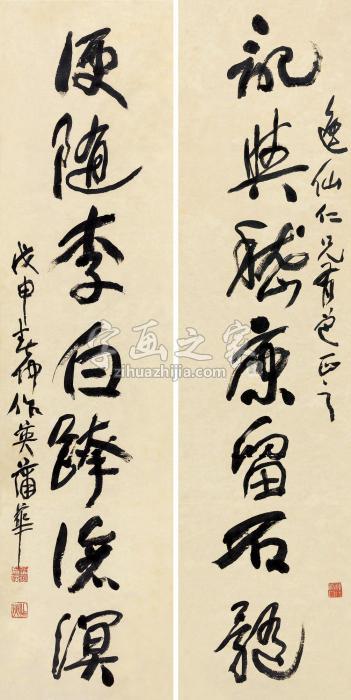 逸仙仁兄有道正之
記與嵇康留石髓
便隨李白跨滄溟
戊申春仲作英蒲華
字画之家
zihuazhijia.com